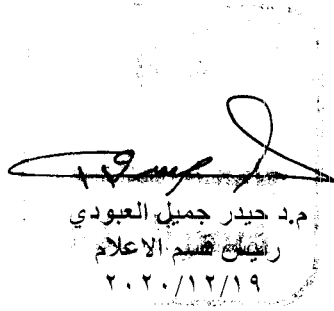 م.د حيدر جميل العبودي
رئيس قسم الاعلام
٢٠٢٠/١٢/١٩